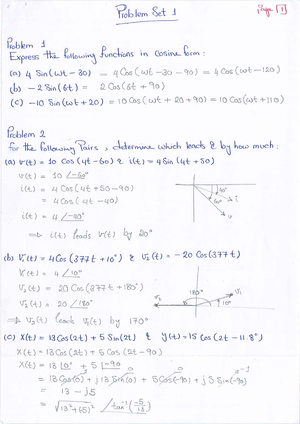 Problem Set 1
Page 1
Problem 1
Express the following functions in cosine form:
(a) 4 Sin(ωt-30) = 4 Cos(ωt-30-90) = 4 Cos(ωt-120)
(b) -2 Sin(6t) = 2 Cos(6t+90)
(c) -10 Sin(ωt+20) = 10 Cos(ωt+20+90) = 10 Cos(ωt+110)
Problem 2
for the following Pairs, determine which leads & by how much:
(a) v(t) = 10 Cos(4t-60) & i(t) = 4 Sin(4t+50)
v(t) = 10 ∠-60°
i(t) = 4 Cos(4t+50-90)
= 4 Cos(4t-40)
i(t) = 4 ∠-40°
⇒ i(t) leads v(t) by 20°
40°
60°
i
v
(b) V₁(t) = 4 Cos(377t+10°) & V₂(t) = -20 Cos(377t)
V₁(t) = 4 ∠10°
V₂(t) = 20 Cos(377t+180°)
V₂(t) = 20 ∠180°
⇒ V₂(t) leads V₁(t) by 170°
180°
V₂
V₁
10°
(c) X(t) = 13 Cos(2t) + 5 Sin(2t) & y(t) = 15 Cos(2t-11.8°)
X(t) = 13 Cos(2t) + 5 Cos(2t-90)
X(t) = 13 ∠0° + 5 ∠-90
= 13 Cos(0) + j13 Sin(0) + 5 Cos(-90) + j5 Sin(-90)
0 0 -1
= 13 - j5
= √13²+(-5)² ∠tan⁻¹(-5/13)